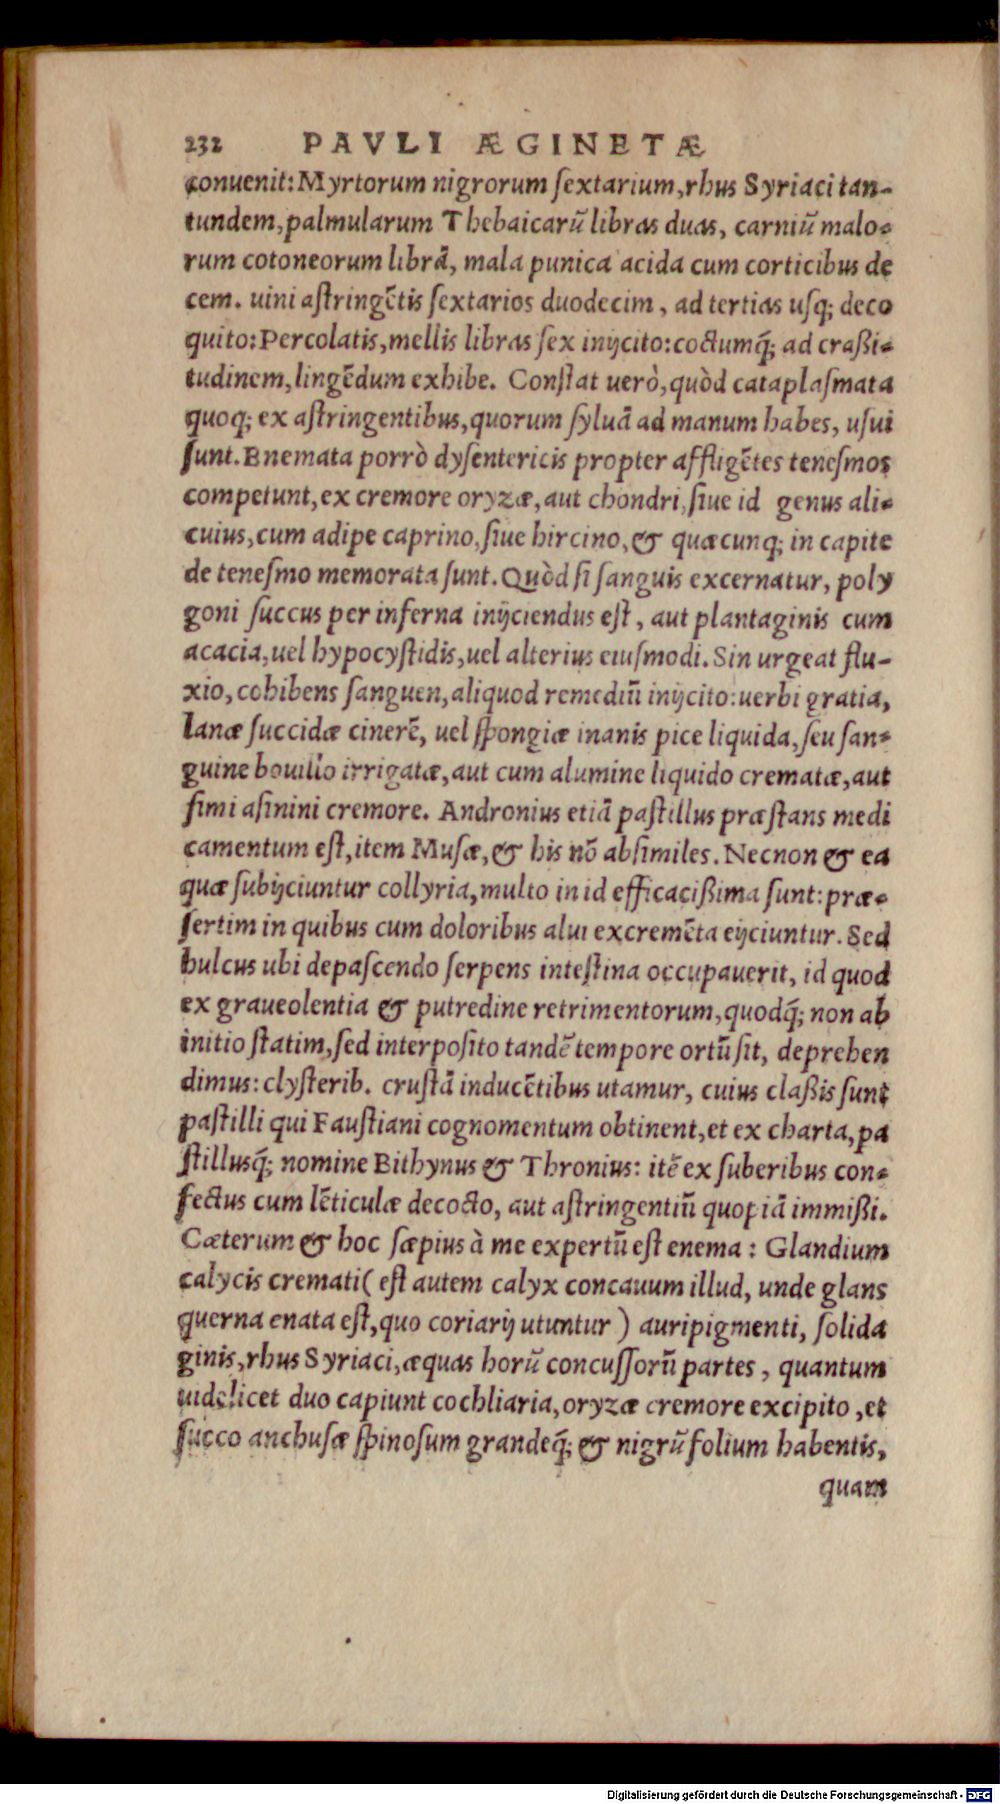 232 PAVLI ÆGINETÆ
conuenit: Myrtorum nigrorum ſextarium, rhus Syriaci tan-
tundem, palmularum Thebaicarũ libras duas, carniũ malo-
rum cotoneorum librã, mala punica acida cum corticibus de
cem. uini aſtringẽtis ſextarios duodecim, ad tertias uſq; deco
quito: Percolatis, mellis libras ſex inijcito: coctumq́; ad craßi-
tudinem, lingẽdum exhibe. Conſtat uerò, quòd cataplaſmata
quoq; ex aſtringentibus, quorum ſyluã ad manum habes, uſui
ſunt. Enemata porrò dyſentericis propter affligẽtes teneſmos
competunt, ex cremore oryzæ, aut chondri, ſiue id genus ali-
cuius, cum adipe caprino, ſiue hircino, & quæcunq; in capite
de teneſmo memorata ſunt. Quòd ſi ſanguis excernatur, poly
goni ſuccus per inferna inijciendus eſt, aut plantaginis cum
acacia, uel hypocyſtidis, uel alterius eiuſmodi. Sin urgeat flu-
xio, cohibens ſanguen, aliquod remediũ inijcito: uerbi gratia,
lanæ ſuccidæ cinerẽ, uel ſpongiæ inanis pice liquida, ſeu ſan-
guine bouillo irrigatæ, aut cum alumine liquido crematæ, aut
fimi aſinini cremore. Andronius etiã paſtillus præſtans medi
camentum eſt, item Muſæ, & his nõ abſimiles. Necnon & ea
quæ ſubijciuntur collyria, multo in id efficacißima ſunt: præ-
ſertim in quibus cum doloribus alui excremẽta eijciuntur. Sed
hulcus ubi depaſcendo ſerpens inteſtina occupauerit, id quod
ex graueolentia & putredine retrimentorum, quodq́; non ab
initio ſtatim, ſed interpoſito tandẽ tempore ortũ ſit, deprehen
dimus: clyſterib. cruſtã inducẽtibus utamur, cuius claßis ſunt
paſtilli qui Fauſtiani cognomentum obtinent, et ex charta, pa
ſtillusq́; nomine Bithynus & Thronius: itẽ ex ſuberibus con-
fectus cum lẽticulæ decocto, aut aſtringentiũ quopiã immißi.
Cæterum & hoc ſæpius à me expertũ eſt enema: Glandium
calycis cremati (eſt autem calyx concauum illud, unde glans
querna enata eſt, quo coriarij utuntur) auripigmenti, ſolida
ginis, rhus Syriaci, æquas horũ concuſſorũ partes, quantum
uidelicet duo capiunt cochliaria, oryzæ cremore excipito, et
ſucco anchuſæ ſpinoſum grandeq́; & nigrũ folium habentis,
quam
Digitalisierung gefördert durch die Deutsche Forschungsgemeinschaft - DFG